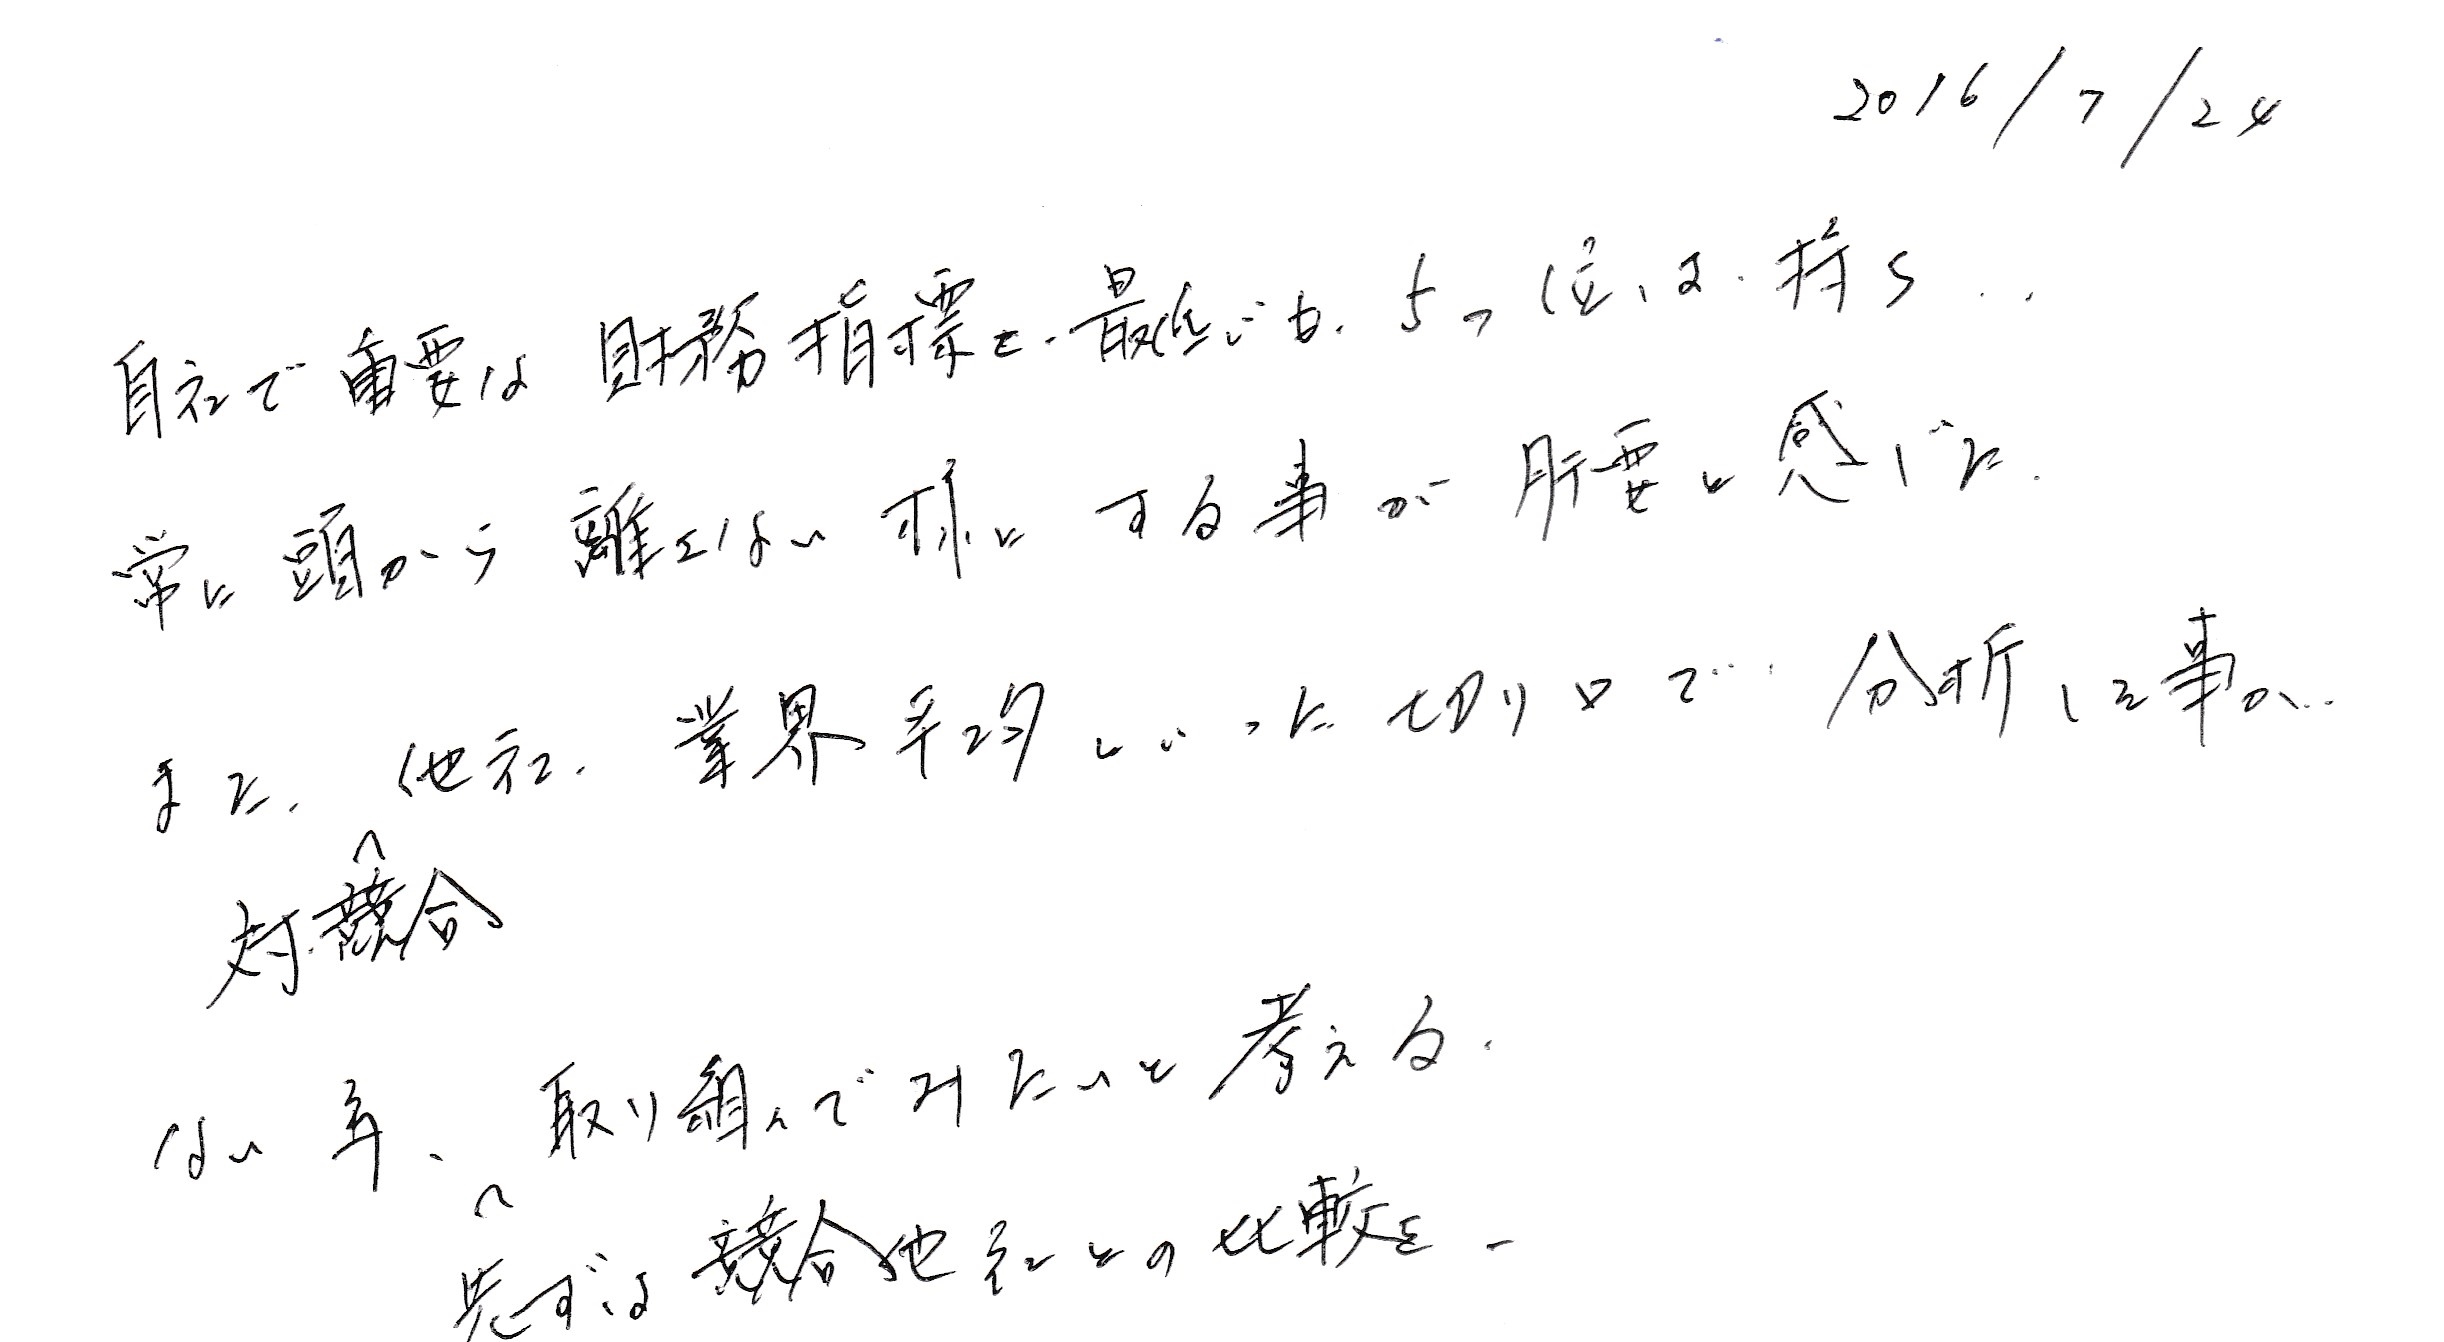 2016/7/24
自社で重要な財務指標を最低でも、5つ位は持ち
常に頭から離さない様にする事が肝要と感じた。
また、他社、業界平均といった切り口で分析した事が
対競合
ない為、取り組んでみたいと考える。
先ずは競合他社との比較を